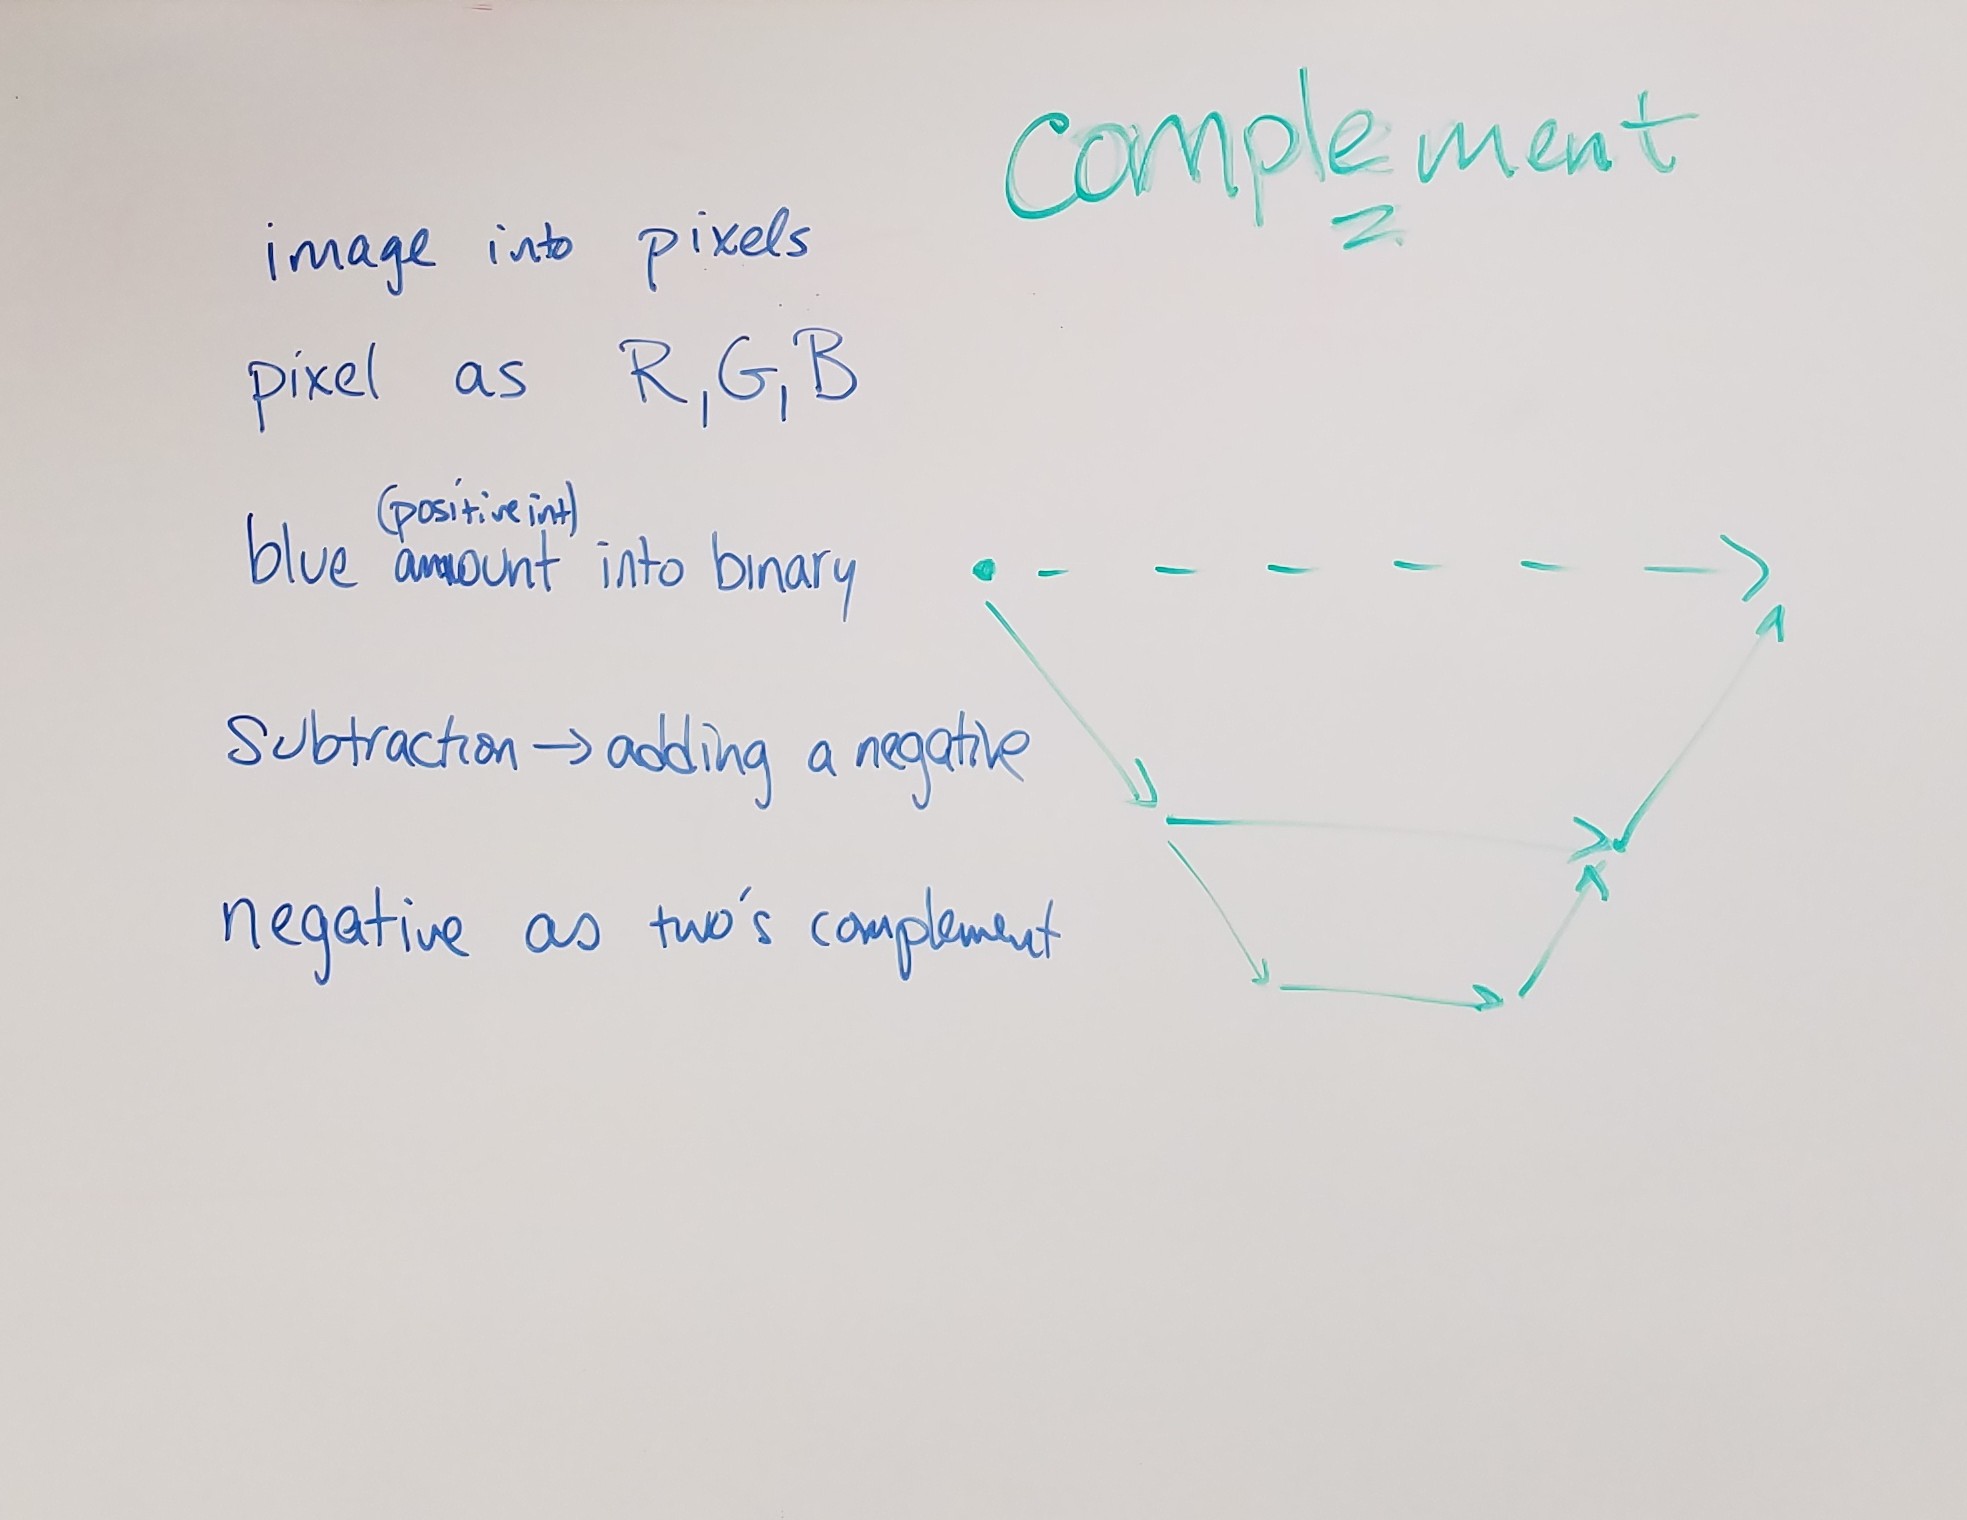 complement
image into pixels
pixel as R,G,B
(positive int)
blue amount into binary
Subtraction → adding a negative
negative as two's complement